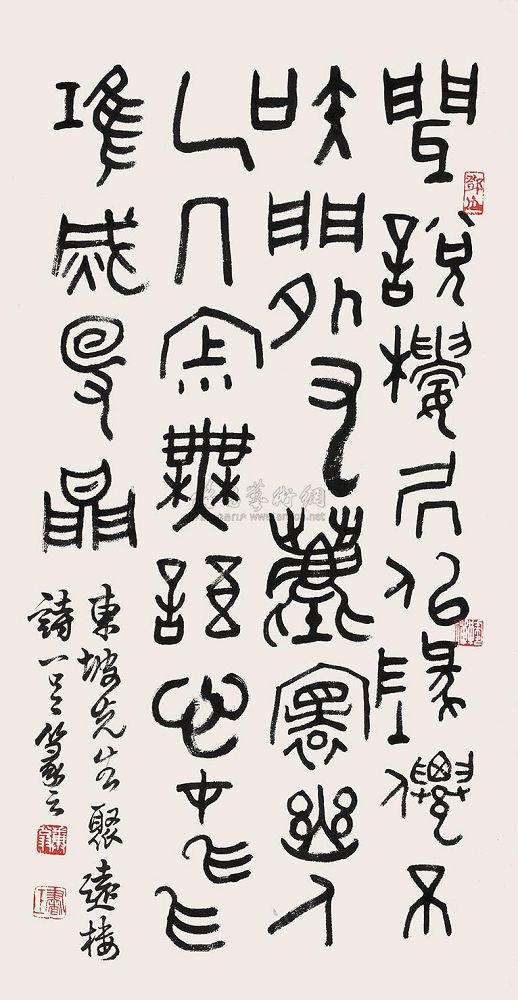 聞說樓居似地僊不
知門外有塵寰幽人
隱几寂無語心在飛
鴻滅没間
東坡先生聚遠樓
詩一首篆之